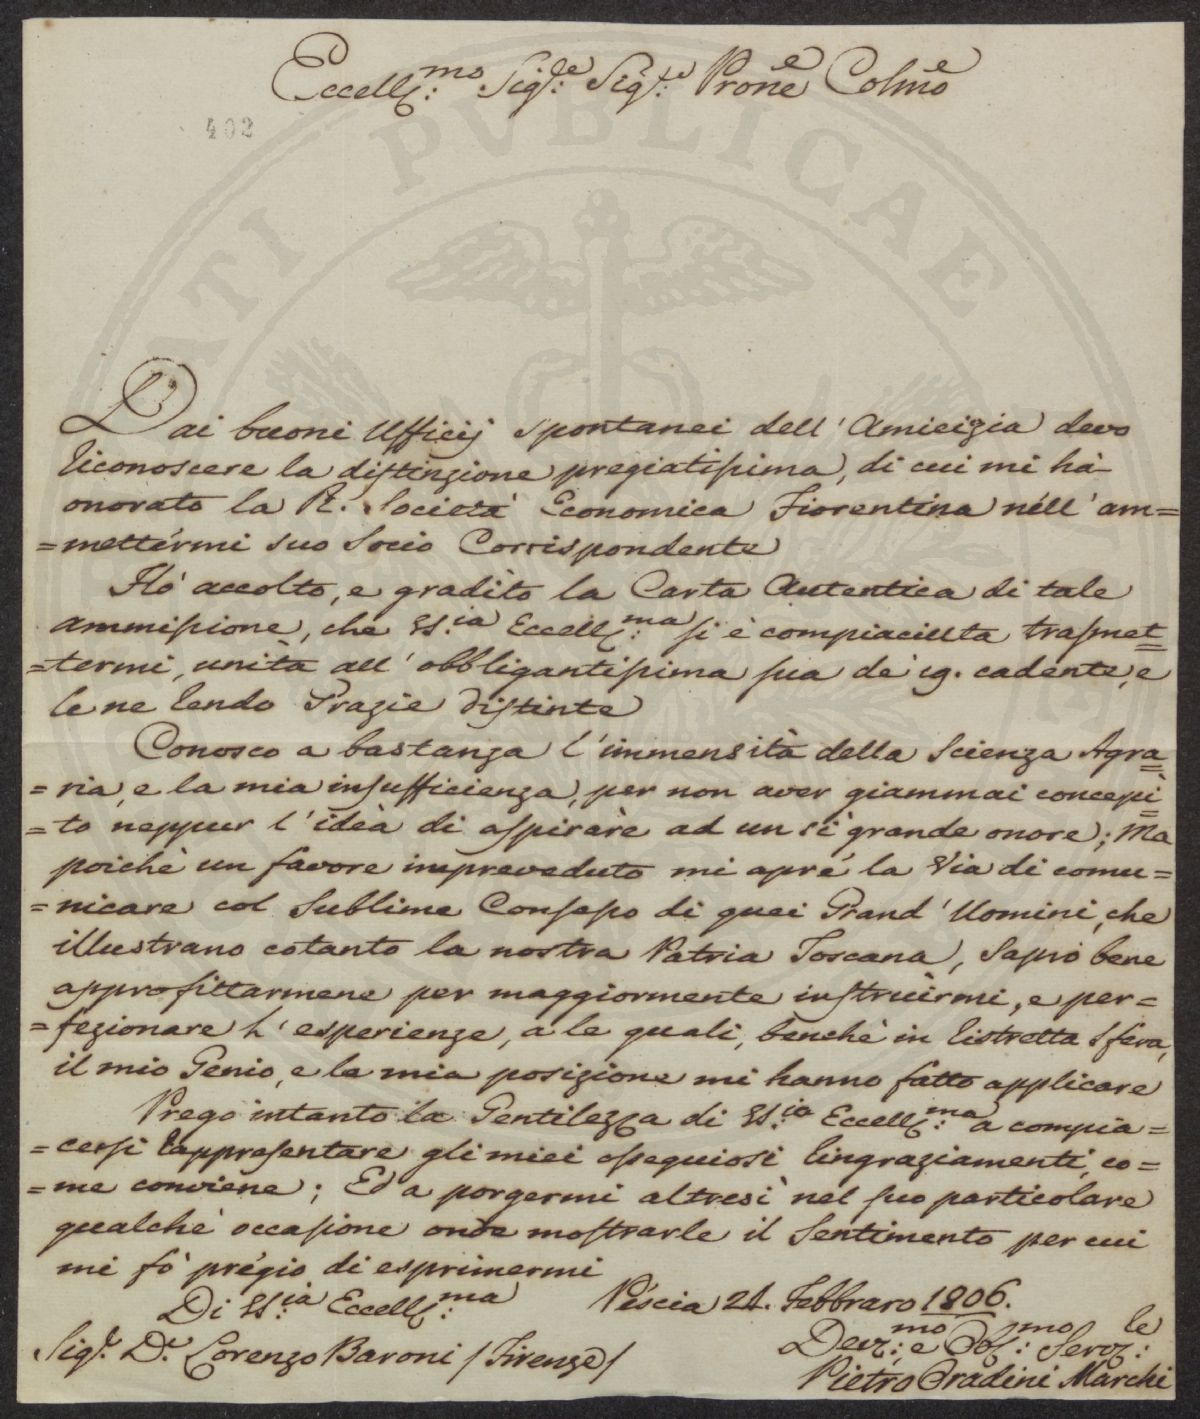 Eccell:mo Sigre: Sigre: Prone Colmo
402
Dai buoni Ufficij spontanei dell' Amicizia devo
riconoscere la distinzione pregiatissima, di cui mi hà
onorato la R. Società Economica Fiorentina nell' am=
=mettérmi suo Socio Corrispondente
Hò accolto, e gradìto la Carta Autentica di tale
ammissione, che VS:ia Eccell:ma si è compiaciuta trasmet=
=termi, unìta all' obbligantissima sua de' 19. cadènte, e
le ne rendo Grazie distinte
Conosco a bastanza l'immensità della Scienza Agra=
=ria, e la mia insufficienza, per non aver giammai concepì=
=to neppur l'idèa di aspiràre ad un sì grande onore; Ma
poichè un favore impreveduto mi apre la Via di comu=
=nicare col Sublime Consesso di quei Grand' Uomini, che
illustrano cotanto la nostra Patria Toscana, Saprò bene
approfittarmene per maggiormente instruìrmi, e per=
=fezionare l' esperienze, a le quali, benchè in ristretta Sfera,
il mio Genio, e la mia posizione mi hanno fatto applicare
Prego intanto la Gentilezza di VS:ia Eccell:ma a compia=
=cersi rappresentare gli miei ossequiosi ringraziamenti, co=
=me conviene; Ed a porgermi altresì nel suo particolare
qualche occasione onde mostrarle il Sentimento per cui
mi fò prégio di esprimermi
Di VS:ia Eccell:ma Péscia 21. Febbraro 1806.
Devz:mo e Obb:mo Servz:le
Sigr. Dr. Lorenzo Baroni /Firenze/
Pietro Oradini Marchi
PVBLICAE